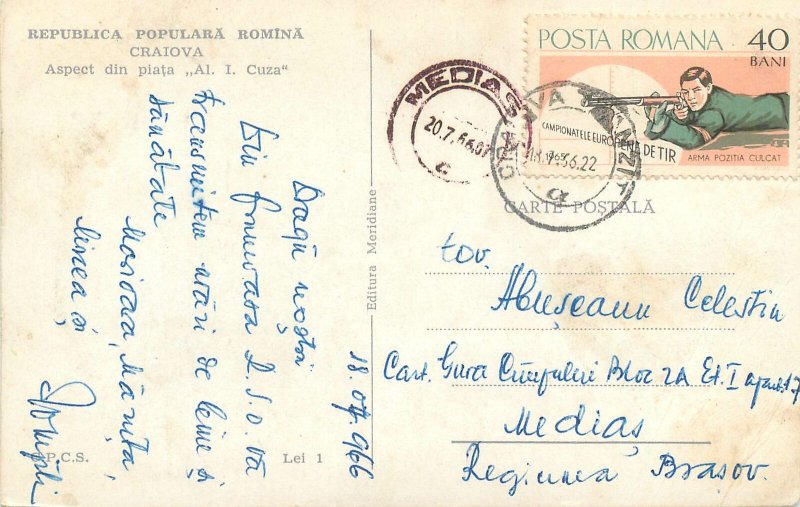 REPUBLICA POPULARĂ ROMÎNĂ
CRAIOVA
Aspect din piața „Al. I. Cuza"
Dragii noștri
Din frumoasa R.S.O. vă
transmitem urări de bine și
sănătate
Mosoaa, Mărița,
Minea și
18.07.966
O.P.C.S.
Lei 1
Editura Meridiane
POSTA ROMANA 40
BANI
CAMPIONATELE EUROPENE DE TIR
1965
ARMA POZITIA CULCAT
MEDIAȘ
20.7.66.07
CRAIOVA
CARTE POȘTALĂ
tov.
Abușeanu Celestin
Cart. Gura Cîmpului Bloc 2A Et. I apart. 17
Mediaș
Regiunea Brașov.